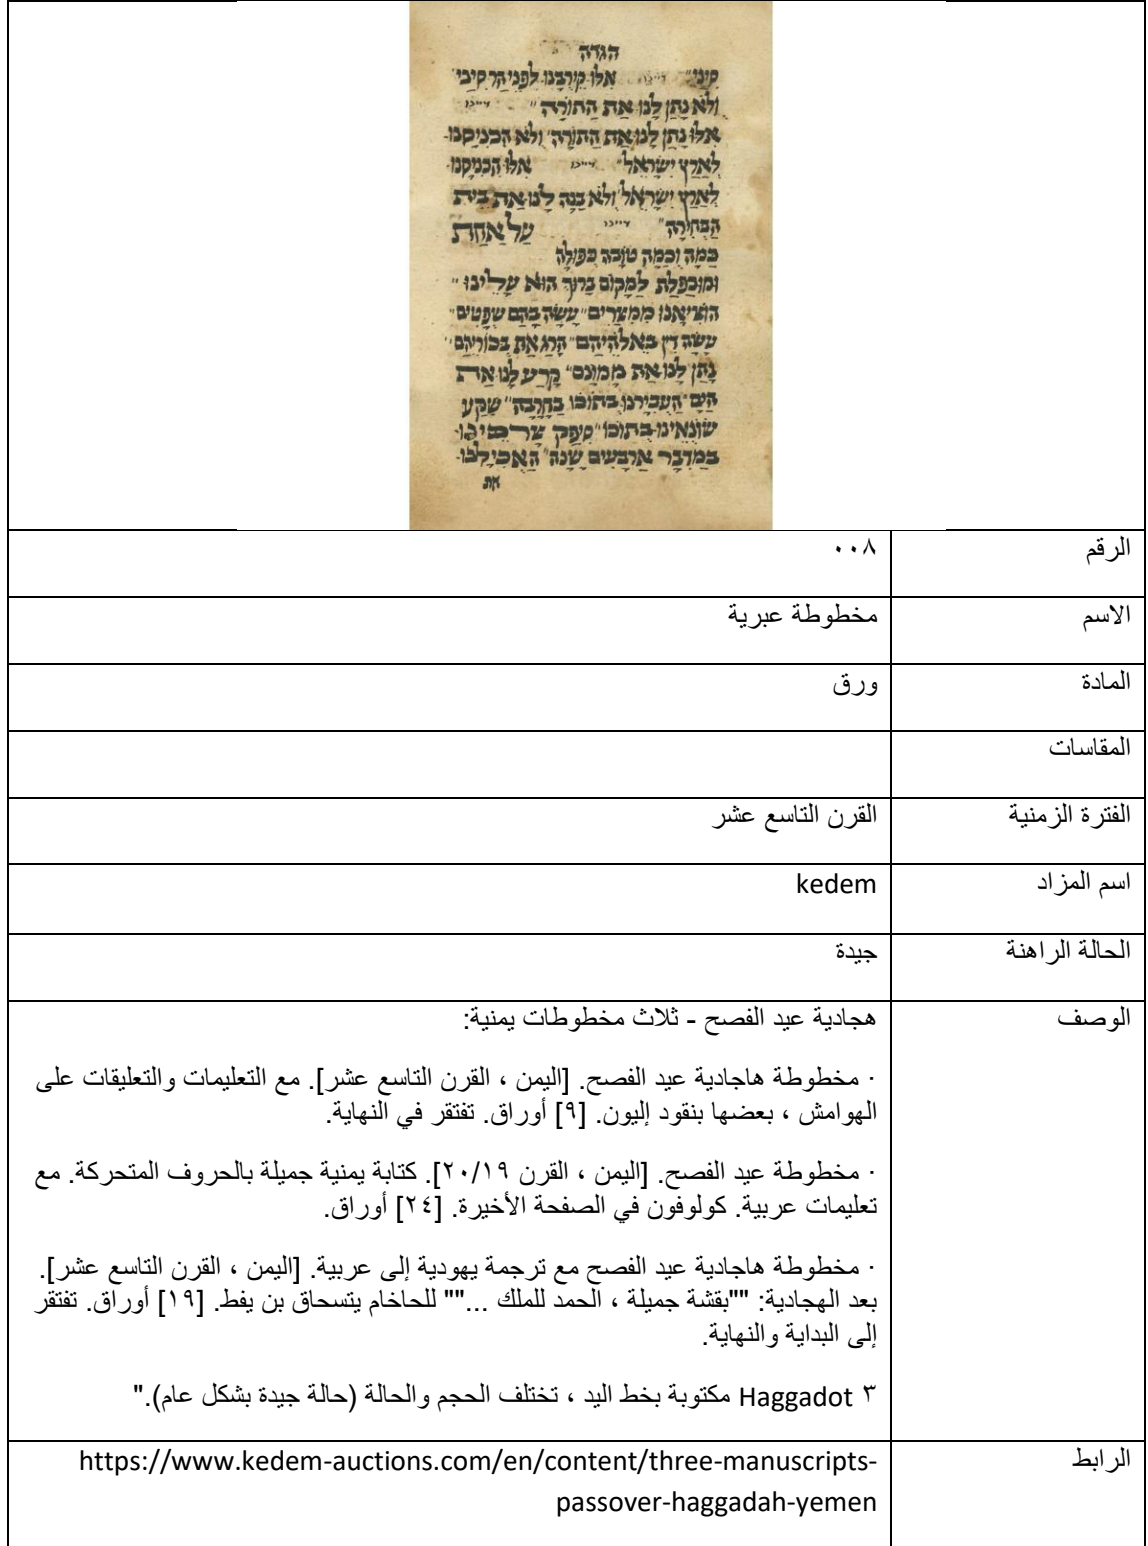 הגדה
סיני" דיינו אלו קירבנו לפני הר סיני
ולא נתן לנו את התורה" דיינו
אלו נתן לנו את התורה ולא הכניסנו
לארץ ישראל" דיינו אלו הכניסנו
לארץ ישראל ולא בנה לנו את בית
הבחירה" דיינו על אחת
כמה וכמה טובה כפולה
ומכופלת למקום ברוך הוא עלינו"
הוציאנו ממצרים" עשה בהם שפטים"
עשה דין באלהיהם" הרג את בכוריהם"
נתן לנו את ממונם" קרע לנו את
הים" העבירנו בתוכו בחרבה" שקע
שונאינו בתוכו" סיפק צרכינו
במדבר ארבעים שנה" האכילנו
את
الرقم ٠٠٨
الاسم مخطوطة عبرية
المادة ورق
المقاسات
الفترة الزمنية القرن التاسع عشر
اسم المزاد kedem
الحالة الراهنة جيدة
الوصف هجادية عيد الفصح - ثلاث مخطوطات يمنية:
· مخطوطة هاجادية عيد الفصح. [اليمن ، القرن التاسع عشر]. مع التعليمات والتعليقات على
الهوامش ، بعضها بنقود إليون. [٩] أوراق. تفتقر في النهاية.
· مخطوطة عيد الفصح. [اليمن ، القرن ٢٠/١٩]. كتابة يمنية جميلة بالحروف المتحركة. مع
تعليمات عربية. كولوفون في الصفحة الأخيرة. [٢٤] أوراق.
· مخطوطة هاجادية عيد الفصح مع ترجمة يهودية إلى عربية. [اليمن ، القرن التاسع عشر].
بعد الهجادية: ""بقشة جميلة ، الحمد للملك ..."" للحاخام يتسحاق بن يفط. [١٩] أوراق. تفتقر
إلى البداية والنهاية.
٣ Haggadot مكتوبة بخط اليد ، تختلف الحجم والحالة (حالة جيدة بشكل عام)."
الرابط https://www.kedem-auctions.com/en/content/three-manuscripts-
passover-haggadah-yemen